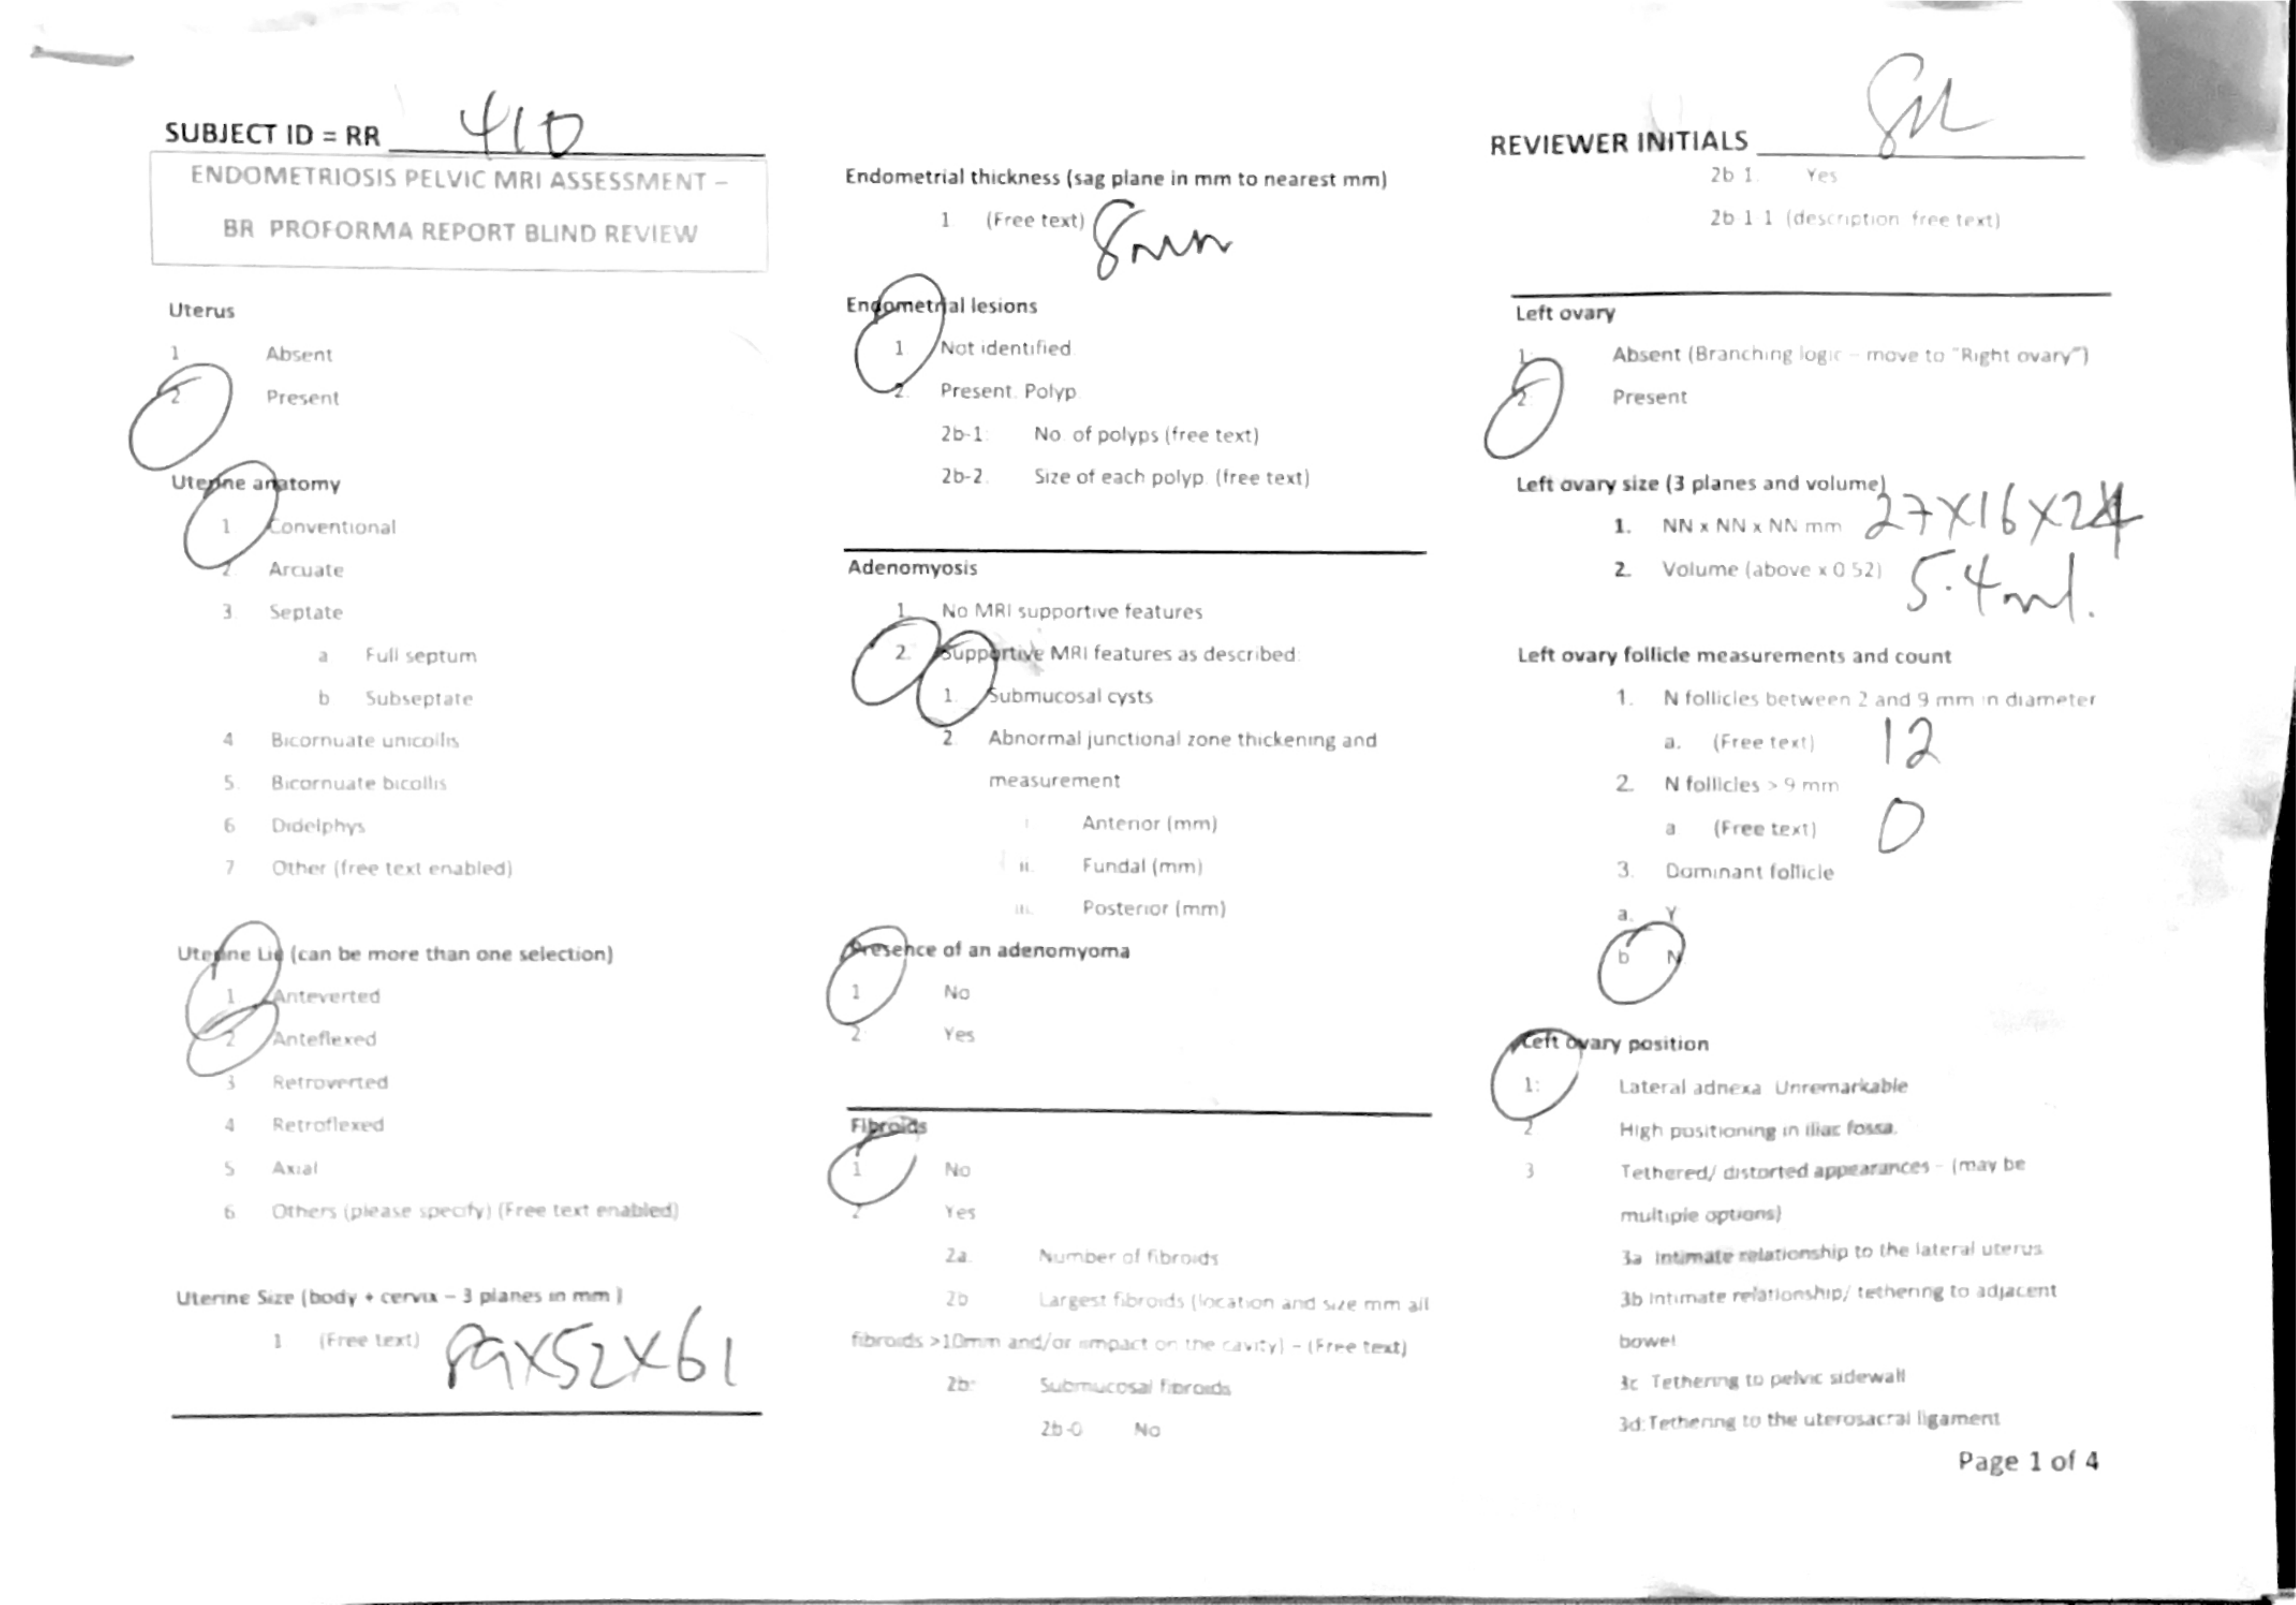 SUBJECT ID = RR 410
ENDOMETRIOSIS PELVIC MRI ASSESSMENT –
BR PROFORMA REPORT BLIND REVIEW
Uterus
1 Absent
2 Present
Uterine anatomy
1 Conventional
2 Arcuate
3. Septate
a Full septum
b Subseptate
4 Bicornuate unicollis
5. Bicornuate bicollis
6 Didelphys
7 Other (free text enabled)
Uterine Lie (can be more than one selection)
1 Anteverted
2 Anteflexed
3 Retroverted
4 Retroflexed
5 Axial
6 Others (please specify) (Free text enabled)
Uterine Size (body + cervix – 3 planes in mm )
1 (Free text) x52x61
Endometrial thickness (sag plane in mm to nearest mm)
1 (Free text) 8mm
Endometrial lesions
1 Not identified
2. Present. Polyp
2b-1: No. of polyps (free text)
2b-2. Size of each polyp. (free text)
Adenomyosis
1. No MRI supportive features
2. Supportive MRI features as described:
1. Submucosal cysts
2. Abnormal junctional zone thickening and
measurement
i Anterior (mm)
ii. Fundal (mm)
iii. Posterior (mm)
Presence of an adenomyoma
1 No
2 Yes
Fibroids
1 No
2 Yes
2a. Number of fibroids
2b Largest fibroids (location and size mm all
fibroids >10mm and/or impact on the cavity) – (Free text)
2b: Submucosal fibroids
2b-0 No
REVIEWER INITIALS
2b 1. Yes
2b-1 1 (description free text)
Left ovary
1: Absent (Branching logic – move to "Right ovary")
2: Present
Left ovary size (3 planes and volume)
1. NN x NN x NN mm 27x16x24
2. Volume (above x 0.52) 5.4ml.
Left ovary follicle measurements and count
1. N follicles between 2 and 9 mm in diameter
a. (Free text) 12
2. N follicles > 9 mm
a (Free text) 0
3. Dominant follicle
a. Y
b N
Left ovary position
1: Lateral adnexa Unremarkable
2 High positioning in iliac fossa.
3 Tethered/ distorted appearances – (may be
multiple options)
3a Intimate relationship to the lateral uterus
3b Intimate relationship/ tethering to adjacent
bowel
3c Tethering to pelvic sidewall
3d:Tethering to the uterosacral ligament
Page 1 of 4